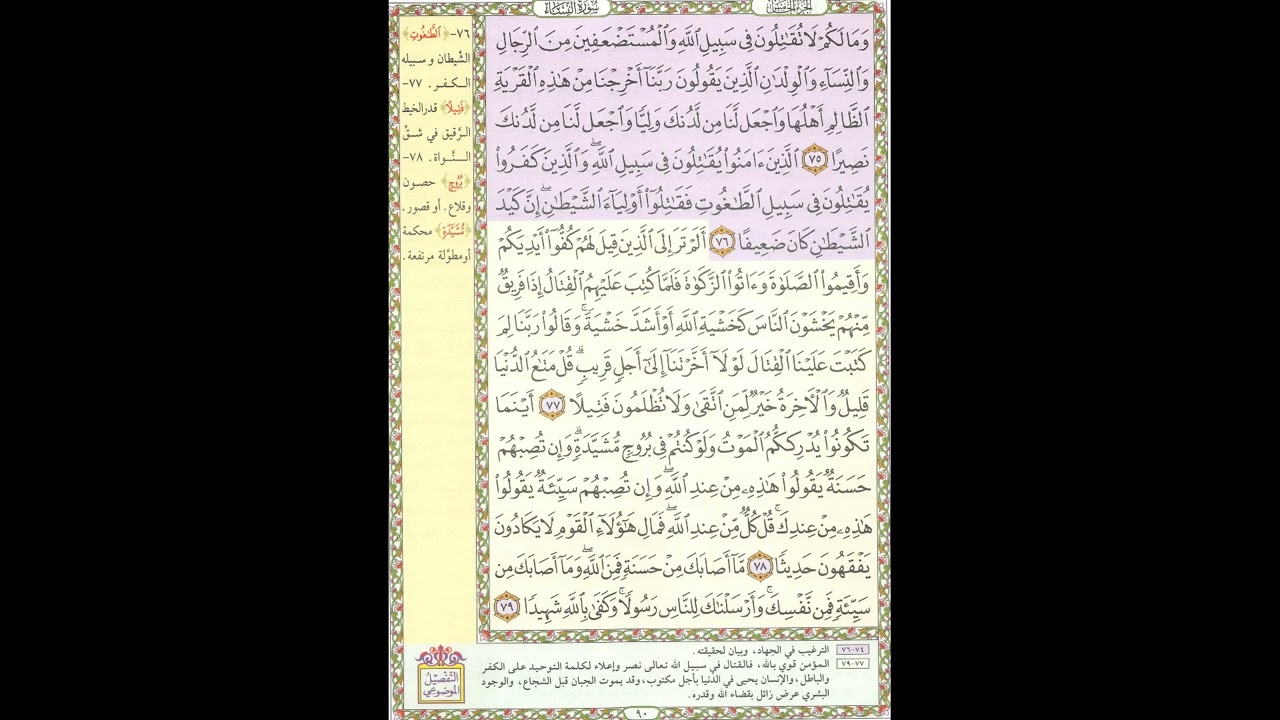 الجزء الخامس
سورة النساء
وَمَا لَكُمْ لَا تُقَٰتِلُونَ فِى سَبِيلِ ٱللَّهِ وَٱلْمُسْتَضْعَفِينَ مِنَ ٱلرِّجَالِ
وَٱلنِّسَآءِ وَٱلْوِلْدَٰنِ ٱلَّذِينَ يَقُولُونَ رَبَّنَآ أَخْرِجْنَا مِنْ هَٰذِهِ ٱلْقَرْيَةِ
ٱلظَّالِمِ أَهْلُهَا وَٱجْعَل لَّنَا مِن لَّدُنكَ وَلِيًّا وَٱجْعَل لَّنَا مِن لَّدُنكَ
نَصِيرًا ٧٥ ٱلَّذِينَ ءَامَنُوا۟ يُقَٰتِلُونَ فِى سَبِيلِ ٱللَّهِ ۖ وَٱلَّذِينَ كَفَرُوا۟
يُقَٰتِلُونَ فِى سَبِيلِ ٱلطَّٰغُوتِ فَقَٰتِلُوٓا۟ أَوْلِيَآءَ ٱلشَّيْطَٰنِ ۖ إِنَّ كَيْدَ
ٱلشَّيْطَٰنِ كَانَ ضَعِيفًا ٧٦ أَلَمْ تَرَ إِلَى ٱلَّذِينَ قِيلَ لَهُمْ كُفُّوٓا۟ أَيْدِيَكُمْ
وَأَقِيمُوا۟ ٱلصَّلَوٰةَ وَءَاتُوا۟ ٱلزَّكَوٰةَ فَلَمَّا كُتِبَ عَلَيْهِمُ ٱلْقِتَالُ إِذَا فَرِيقٌ
مِّنْهُمْ يَخْشَوْنَ ٱلنَّاسَ كَخَشْيَةِ ٱللَّهِ أَوْ أَشَدَّ خَشْيَةً ۚ وَقَالُوا۟ رَبَّنَا لِمَ
كَتَبْتَ عَلَيْنَا ٱلْقِتَالَ لَوْلَآ أَخَّرْتَنَآ إِلَىٰٓ أَجَلٍ قَرِيبٍ ۗ قُلْ مَتَٰعُ ٱلدُّنْيَا
قَلِيلٌ وَٱلْءَاخِرَةُ خَيْرٌ لِّمَنِ ٱتَّقَىٰ وَلَا تُظْلَمُونَ فَتِيلًا ٧٧ أَيْنَمَا
تَكُونُوا۟ يُدْرِككُّمُ ٱلْمَوْتُ وَلَوْ كُنتُمْ فِى بُرُوجٍ مُّشَيَّدَةٍ ۗ وَإِن تُصِبْهُمْ
حَسَنَةٌ يَقُولُوا۟ هَٰذِهِۦ مِنْ عِندِ ٱللَّهِ ۖ وَإِن تُصِبْهُمْ سَيِّئَةٌ يَقُولُوا۟
هَٰذِهِۦ مِنْ عِندِكَ ۚ قُلْ كُلٌّ مِّنْ عِندِ ٱللَّهِ ۖ فَمَالِ هَٰٓؤُلَآءِ ٱلْقَوْمِ لَا يَكَادُونَ
يَفْقَهُونَ حَدِيثًا ٧٨ مَّآ أَصَابَكَ مِنْ حَسَنَةٍ فَمِنَ ٱللَّهِ ۖ وَمَآ أَصَابَكَ مِن
سَيِّئَةٍ فَمِن نَّفْسِكَ ۚ وَأَرْسَلْنَٰكَ لِلنَّاسِ رَسُولًا ۚ وَكَفَىٰ بِٱللَّهِ شَهِيدًا ٧٩
٧٦- ﴿الطَّاغُوتِ﴾
الشَّيطان و سبيله
الـكـفـر. ٧٧-
﴿فَتِيلًا﴾ قدرالخيط
الرَّقيق في شـقِّ
النَّـواة. ٧٨-
﴿بُرُوجٍ﴾ حصـون
وقلاع. أو قصور.
﴿مُشَيَّدَةٍ﴾ محكمة
أومطوَّلة مرتفعة.
٧٤-٧٦ الترغيب في الجهاد، وبيان لحقيقته.
٧٧-٧٩ المؤمن قوي بالله، فالقتال في سبيل الله تعالى نصر وإعلاء لكلمة التوحيد على الكفر
والباطل، والإنسان يحيى في الدنيا بأجل مكتوب، وقد يموت الجبان قبل الشجاع، والوجود
البشري عرض زائل بقضاء الله وقدره.
التفصيل
الموضوعي
٩٠